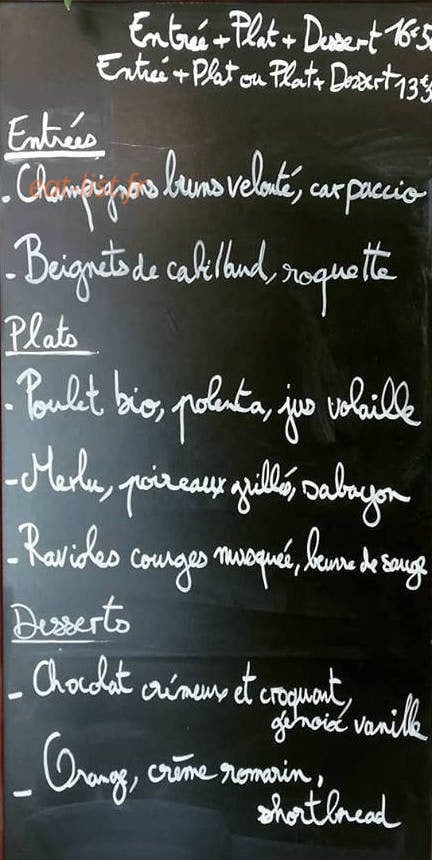 Entrée + Plat + Dessert 16€5
Entrée + Plat ou Plat + Dessert 13€5
Entrées
- Champignons bruns velouté, carpaccio
eat-list.fr
- Beignets de cabillaud, roquette
Plats
- Poulet bio, polenta, jus volaille
- Merlu, poireaux grillés, sabayon
- Ravioles courges musquée, beurre de sauge
Desserts
- Chocolat crémeux et croquant,
vanille
- Orange, crème romarin,
shortbread